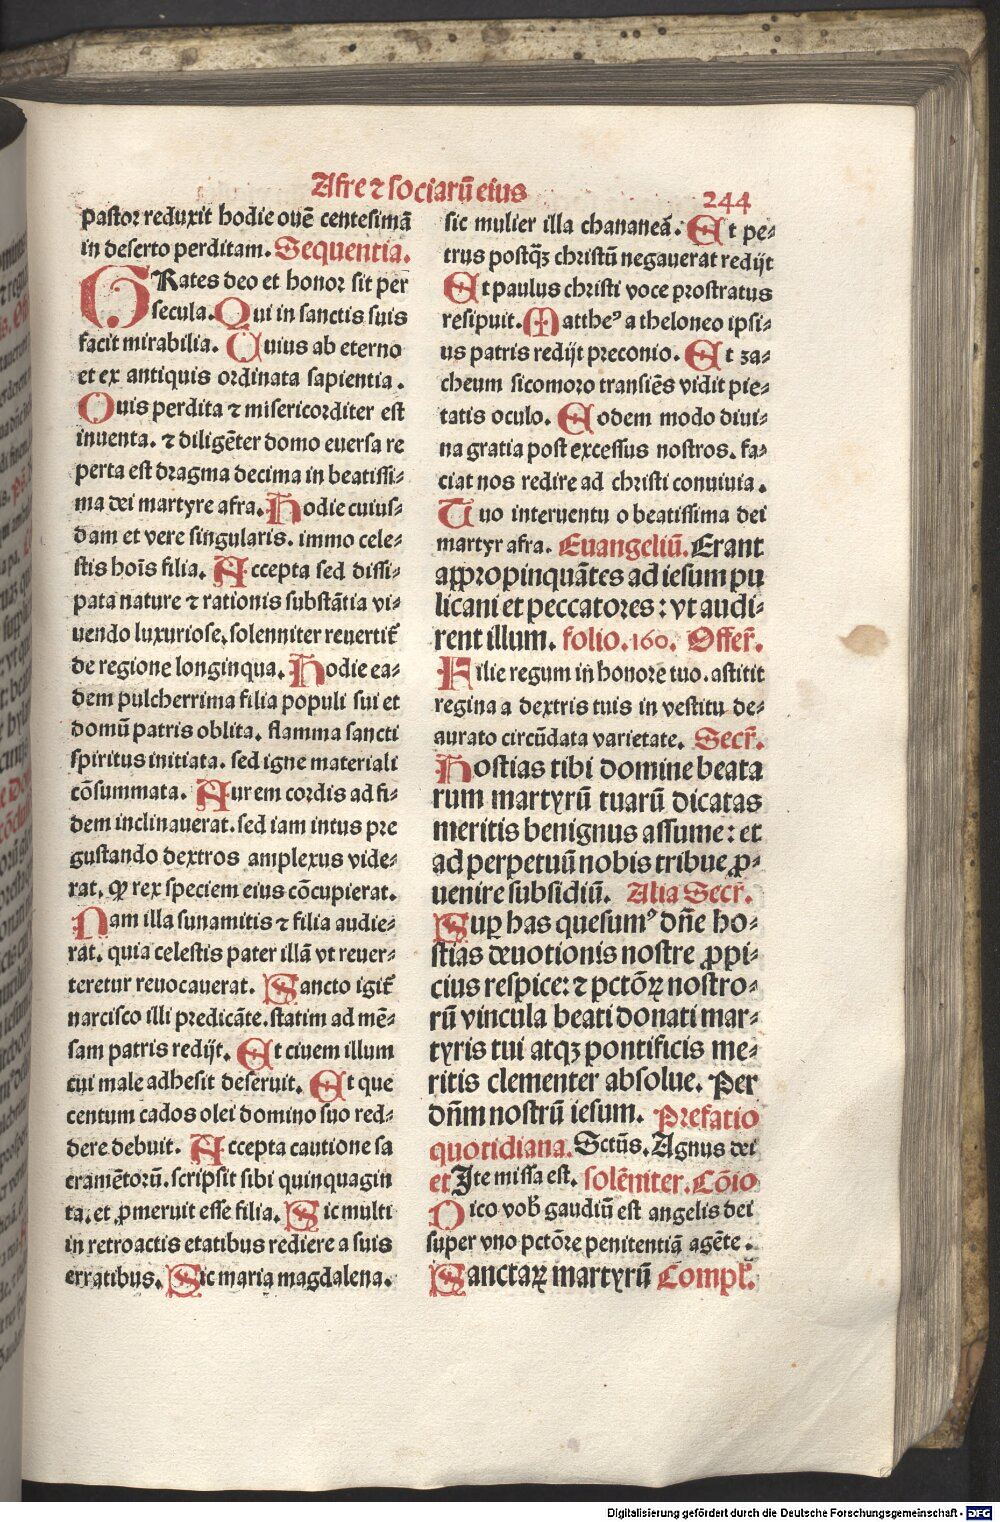 Afre ⁊ sociarū eius
244
pastor reduxit hodie ouē centesimā
in deserto perditam. Sequentia.
GRates deo et honor sit per
secula. Qui in sanctis suis
facit mirabilia. Cuius ab eterno
et ex antiquis ordinata sapientia.
Ouis perdita ⁊ misericorditer est
inuenta. ⁊ diligēter domo euersa re
perta est dragma decima in beatissi⸗
ma dei martyre afra. Hodie cuius⸗
dam et vere singularis. immo cele⸗
stis hoīs filia. Accepta sed dissi⸗
pata nature ⁊ rationis substātia vi⸗
uendo luxuriose, solenniter reuertit᷑
de regione longinqua. Hodie ea⸗
dem pulcherrima filia populi sui et
domū patris oblita. flamma sancti
spiritus initiata. sed igne materiali
cōsummata. Aurem cordis ad fi⸗
dem inclinauerat. sed iam intus pre
gustando dextros amplexus vide⸗
rat. ꝙ rex speciem eius cōcupierat.
Nam illa sunamitis ⁊ filia audie⸗
rat. quia celestis pater illā vt reuer⸗
teretur reuocauerat. Sancto igit᷑
narcisco illi predicāte. statim ad mē⸗
sam patris redijt. Et ciuem illum
cui male adhesit deseruit. Et que
centum cados olei domino suo red⸗
dere debuit. Accepta cautione sa
cramētorū. scripsit sibi quinquagin
ta. et ꝓmeruit esse filia. Sic multi
in retroactis etatibus rediere a suis
erratibus. Sic maria magdalena.
sic mulier illa chananeā. Et pe⸗
trus postqꝫ christū negauerat redijt
Et paulus christi voce prostratus
resipuit. Mattheꝰ a theloneo ipsi⸗
us patris redijt preconio. Et za⸗
cheum sicomoro transiēs vidit pie⸗
tatis oculo. Eodem modo diui⸗
na gratia post excessus nostros. fa⸗
ciat nos redire ad christi conuiuia.
Tuo interuentu o beatissima dei
martyr afra. Euangeliū. Erant
appropinquātes ad iesum pu
licani et peccatores: vt audi⸗
rent illum. folio. 160. Offer᷑.
Filie regum in honore tuo. astitit
regina a dextris tuis in vestitu de⸗
aurato circūdata varietate. Secr᷑.
Hostias tibi domine beata
rum martyrū tuarū dicatas
meritis benignus assume: et
ad perpetuū nobis tribue ꝓ⸗
uenire subsidiū. Alia Secr᷑.
Suꝑ has quesumꝰ dn̄e ho⸗
stias deuotionis nostre ꝓpi⸗
cius respice: ⁊ pctōꝝ nostro⸗
rū vincula beati donati mar⸗
tyris tui atqꝫ pontificis me⸗
ritis clementer absolue. Per
dn̄m nostrū iesum. Prefatio
quotidiana. Sctūs. Agnus dei
et Ite missa est. solēniter. Cōio
Dico vob᷑ gaudiū est angelis dei
super vno pctōre penitentiā agēte.
Sanctaꝝ martyrū Compl᷑.
Digitalisierung gefördert durch die Deutsche Forschungsgemeinschaft - DFG